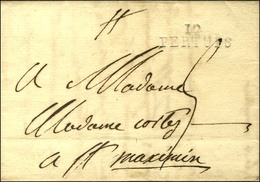 12
PERTUIS
A Madame
Madame cortez
a St maximin